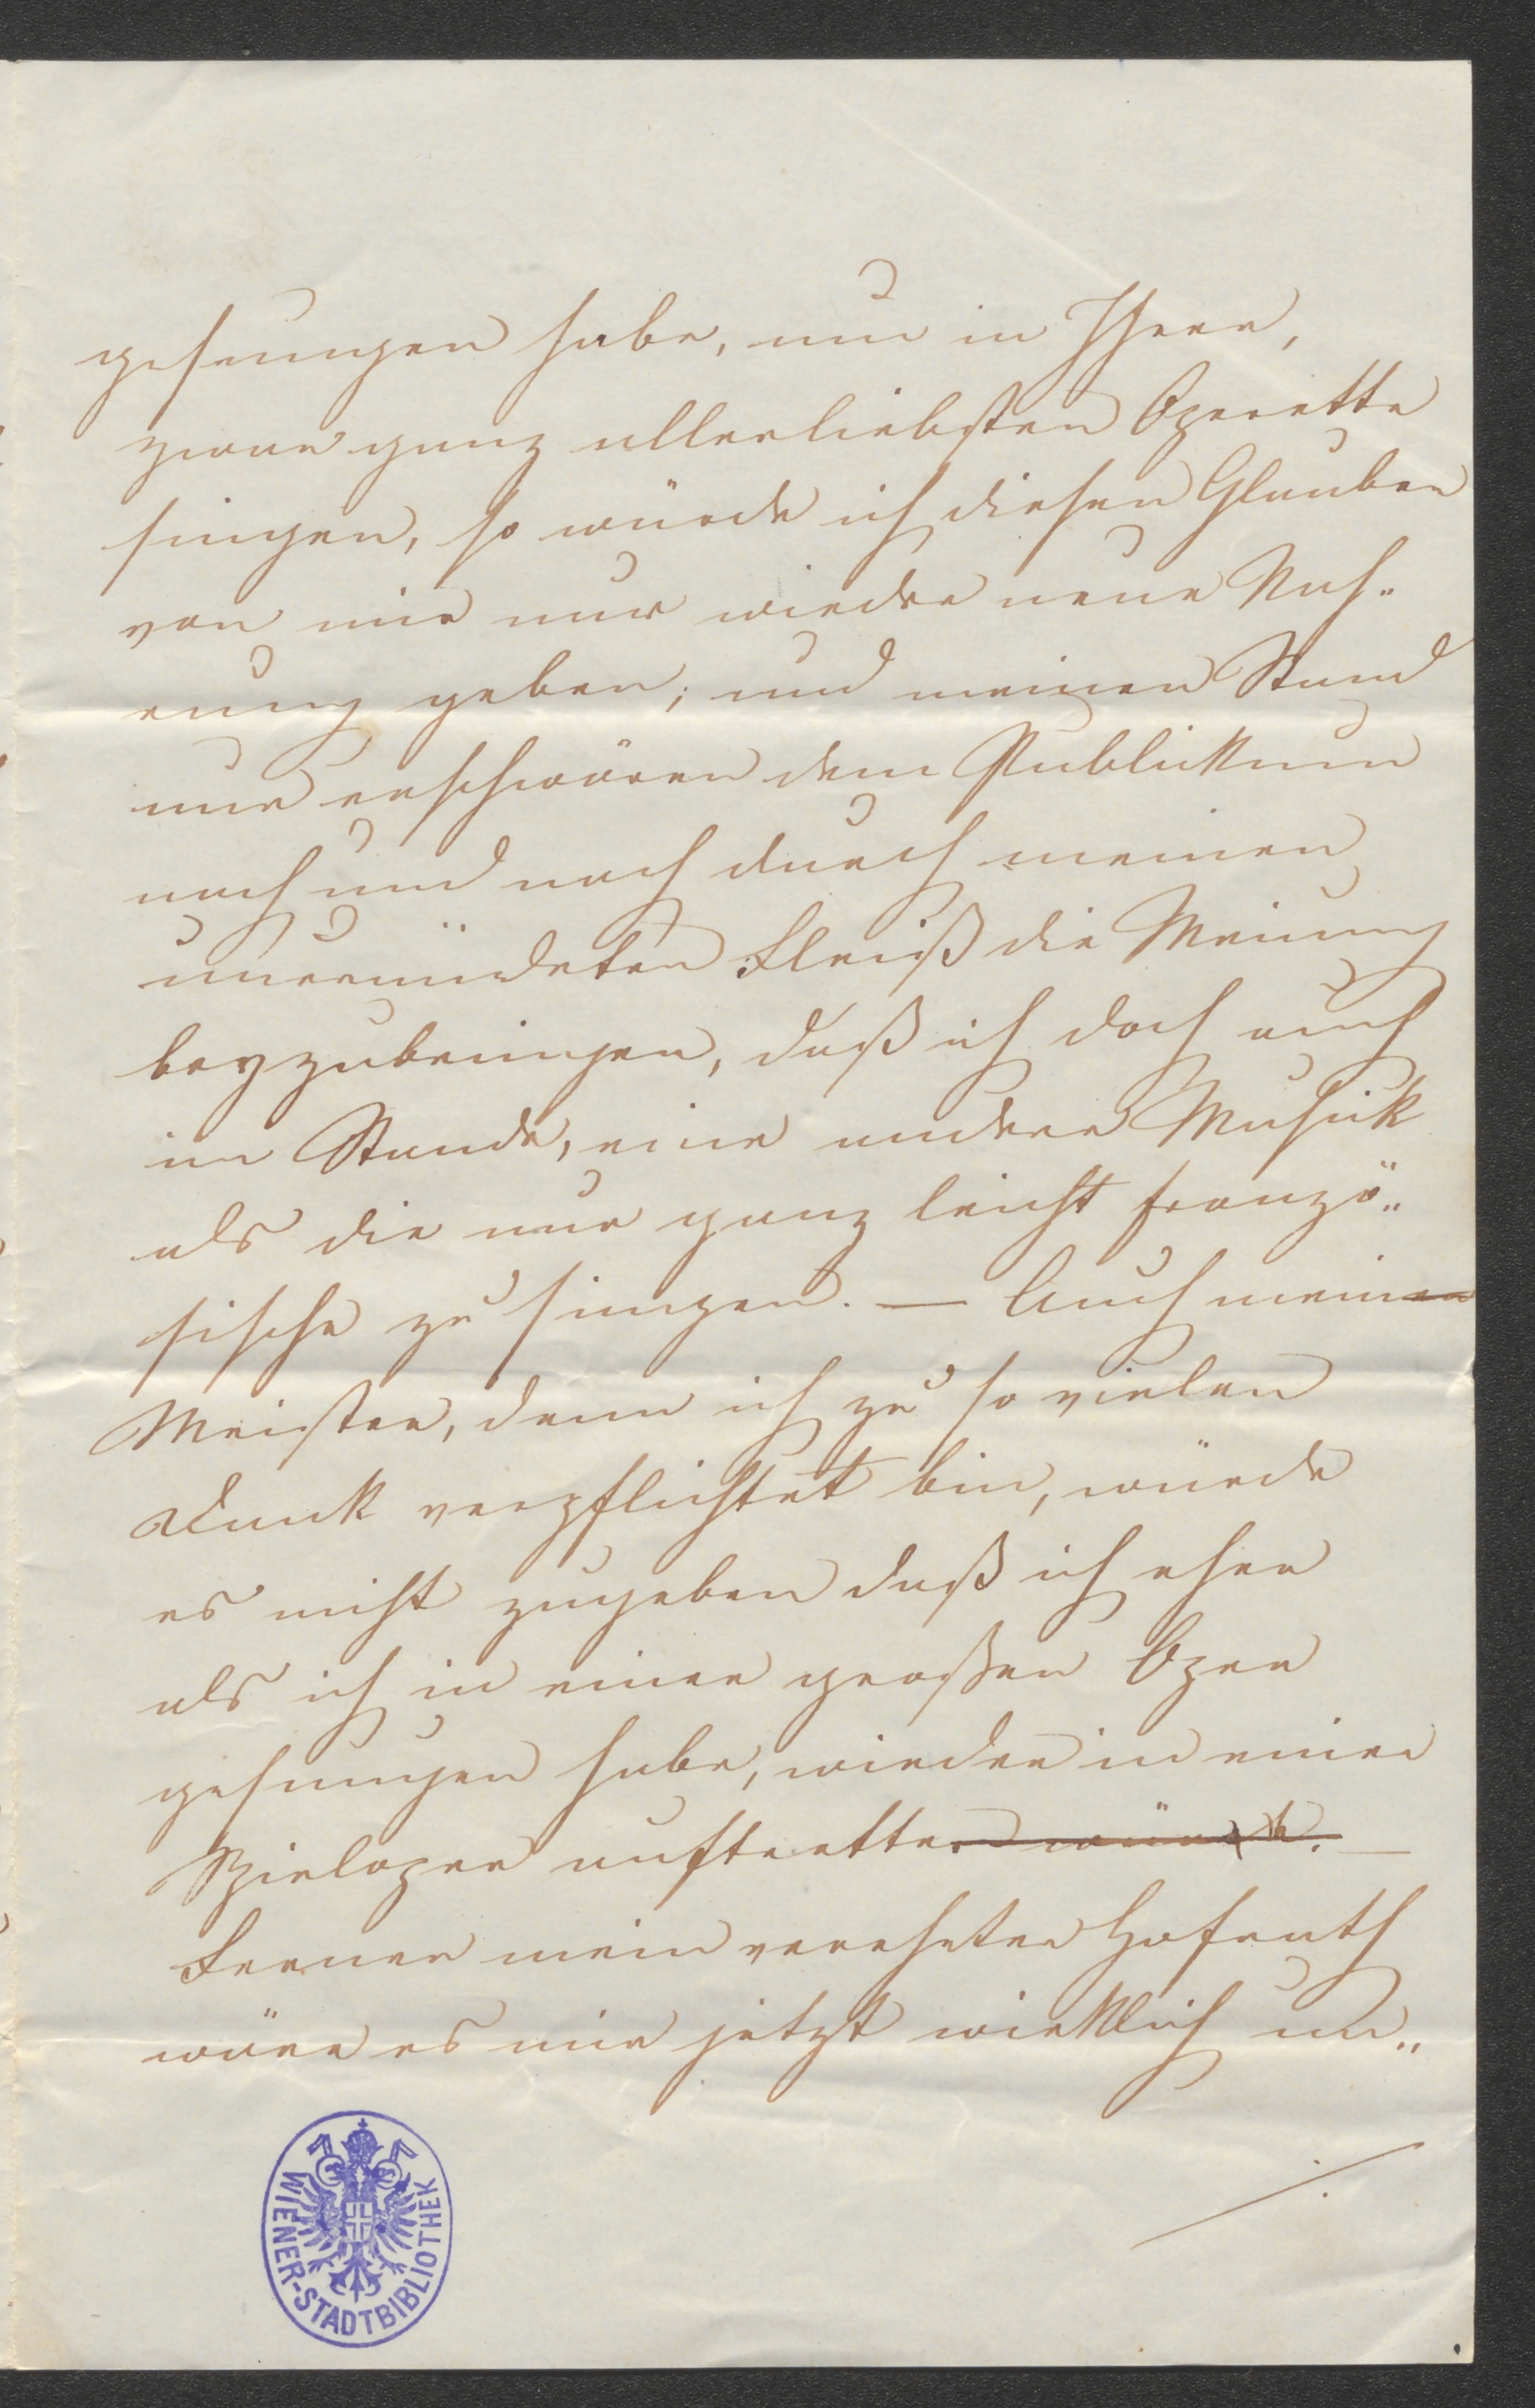 gesungen habe, nun in Ihrer,
zwar ganz allerliebsten Operette
singen, so würde ich diesen Glauben
von mir nur wieder neue Nah-
rung geben; und meinen Stand
nur erschwären dem Publikum
nach und nach durch meinen
unermüdeten Fleiß die Meinung
beyzubringen, daß ich doch auch
im Stande, eine andere Musick
als die nur ganz leicht franzö-
sische zu singen. — Auch meinen
Meister, dem ich zu so vielen
Dank verpflichtet bin, würde
es nicht zugeben daß ich eher
als ich in einer großen Oper
gesungen habe, wieder in einer
Spieloper auftretten würde. —
Ferner mein verehrter Hofrath
wäre es mir jetzt wirklich un-
./.
WIENER-STADTBIBLIOTHEK